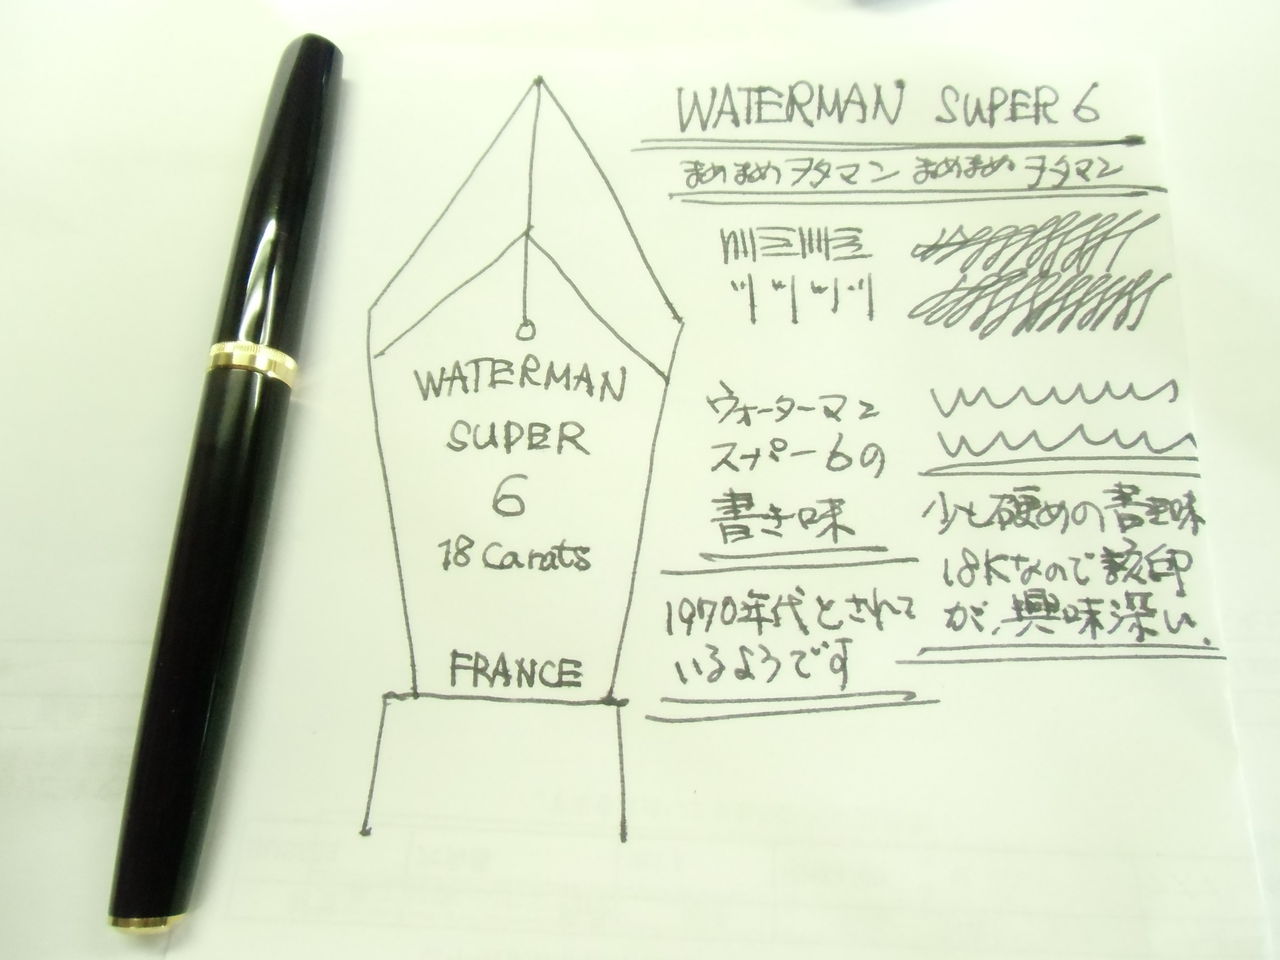 WATERMAN SUPER 6
まめまめヲタマン まめまめヲタマン
WATERMAN
SUPER
6
18 Carats
FRANCE
ウォーターマン
スーパー6の
書き味
1970年代とされて
いるようです
少し硬めの書き味
18Kなので刻印
が、興味深い.